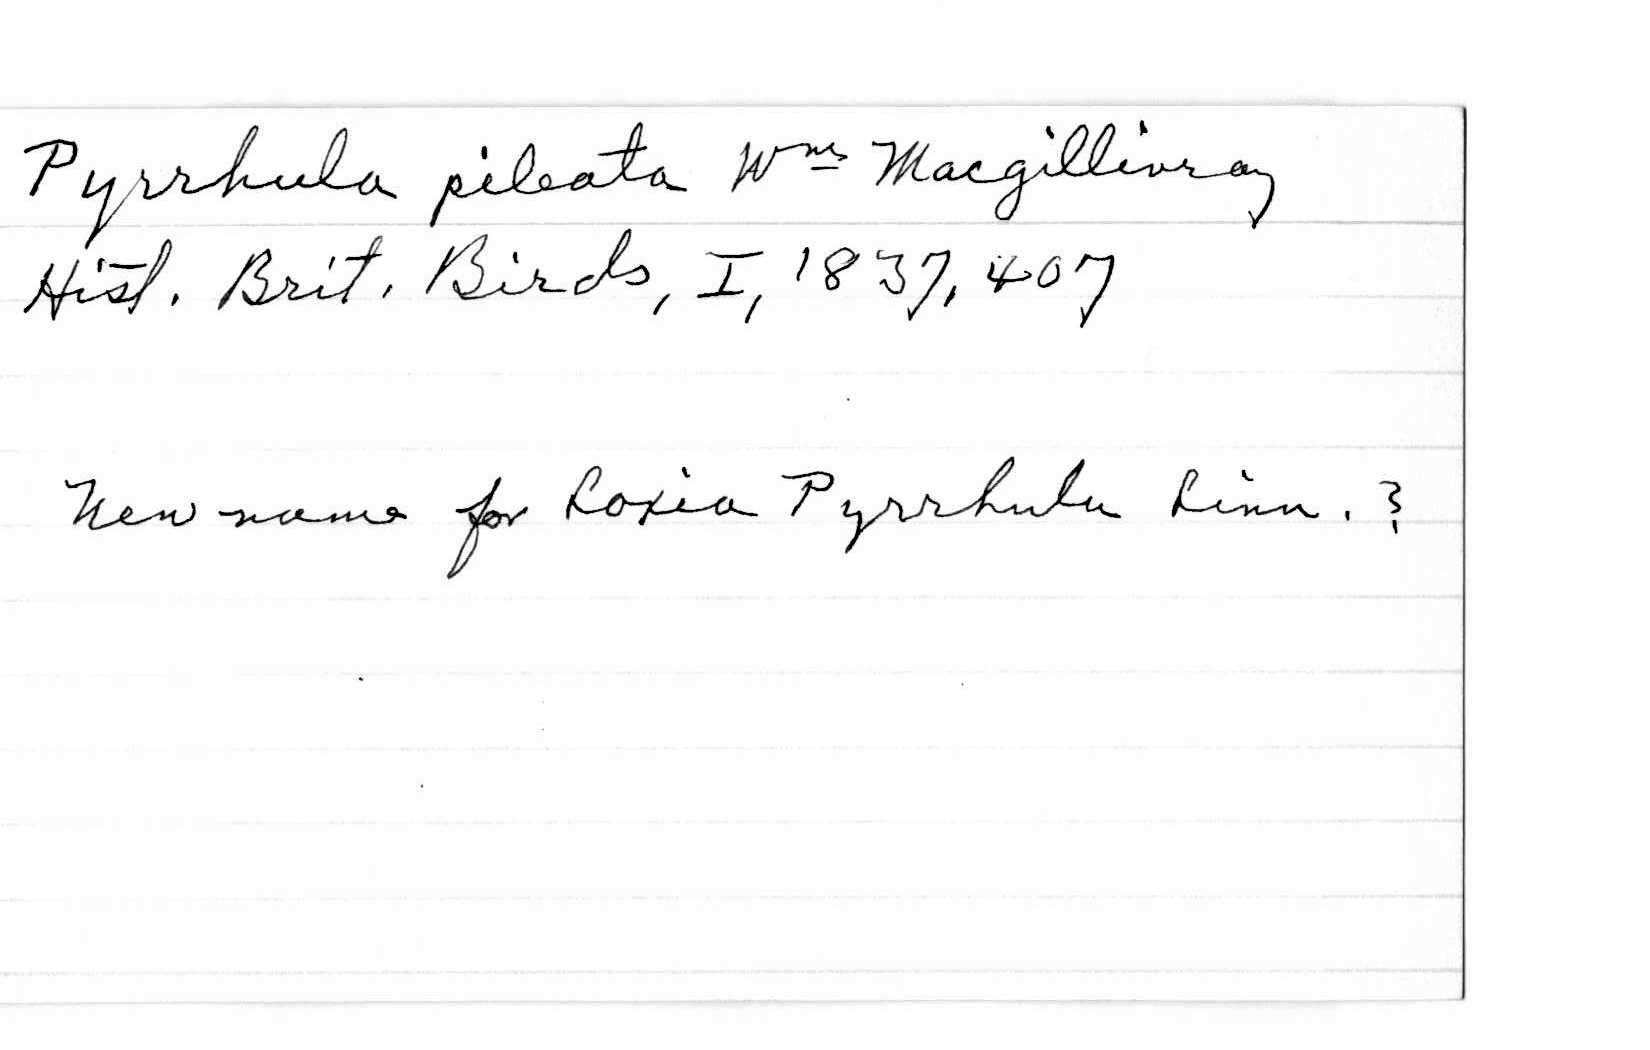 Pyrrhula pileata Wm Macgillivray
Hist. Brit. Birds, I, 1837, 407
New name for Loxia Pyrrhula Linn. ?